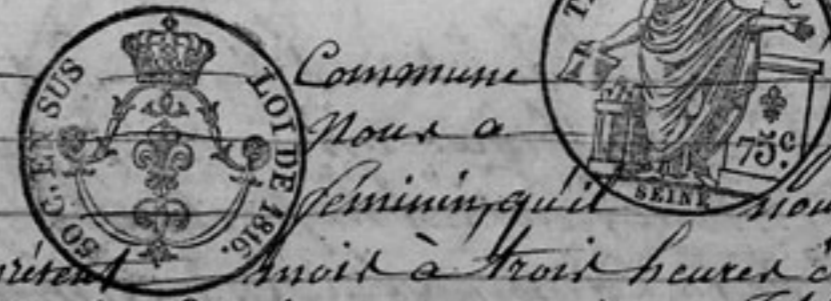 50 C. EN SUS LOI DE 1816.
75c.
SEINE
Commune
Nous a
féminin, qu'il nou
présent mois à trois heures d